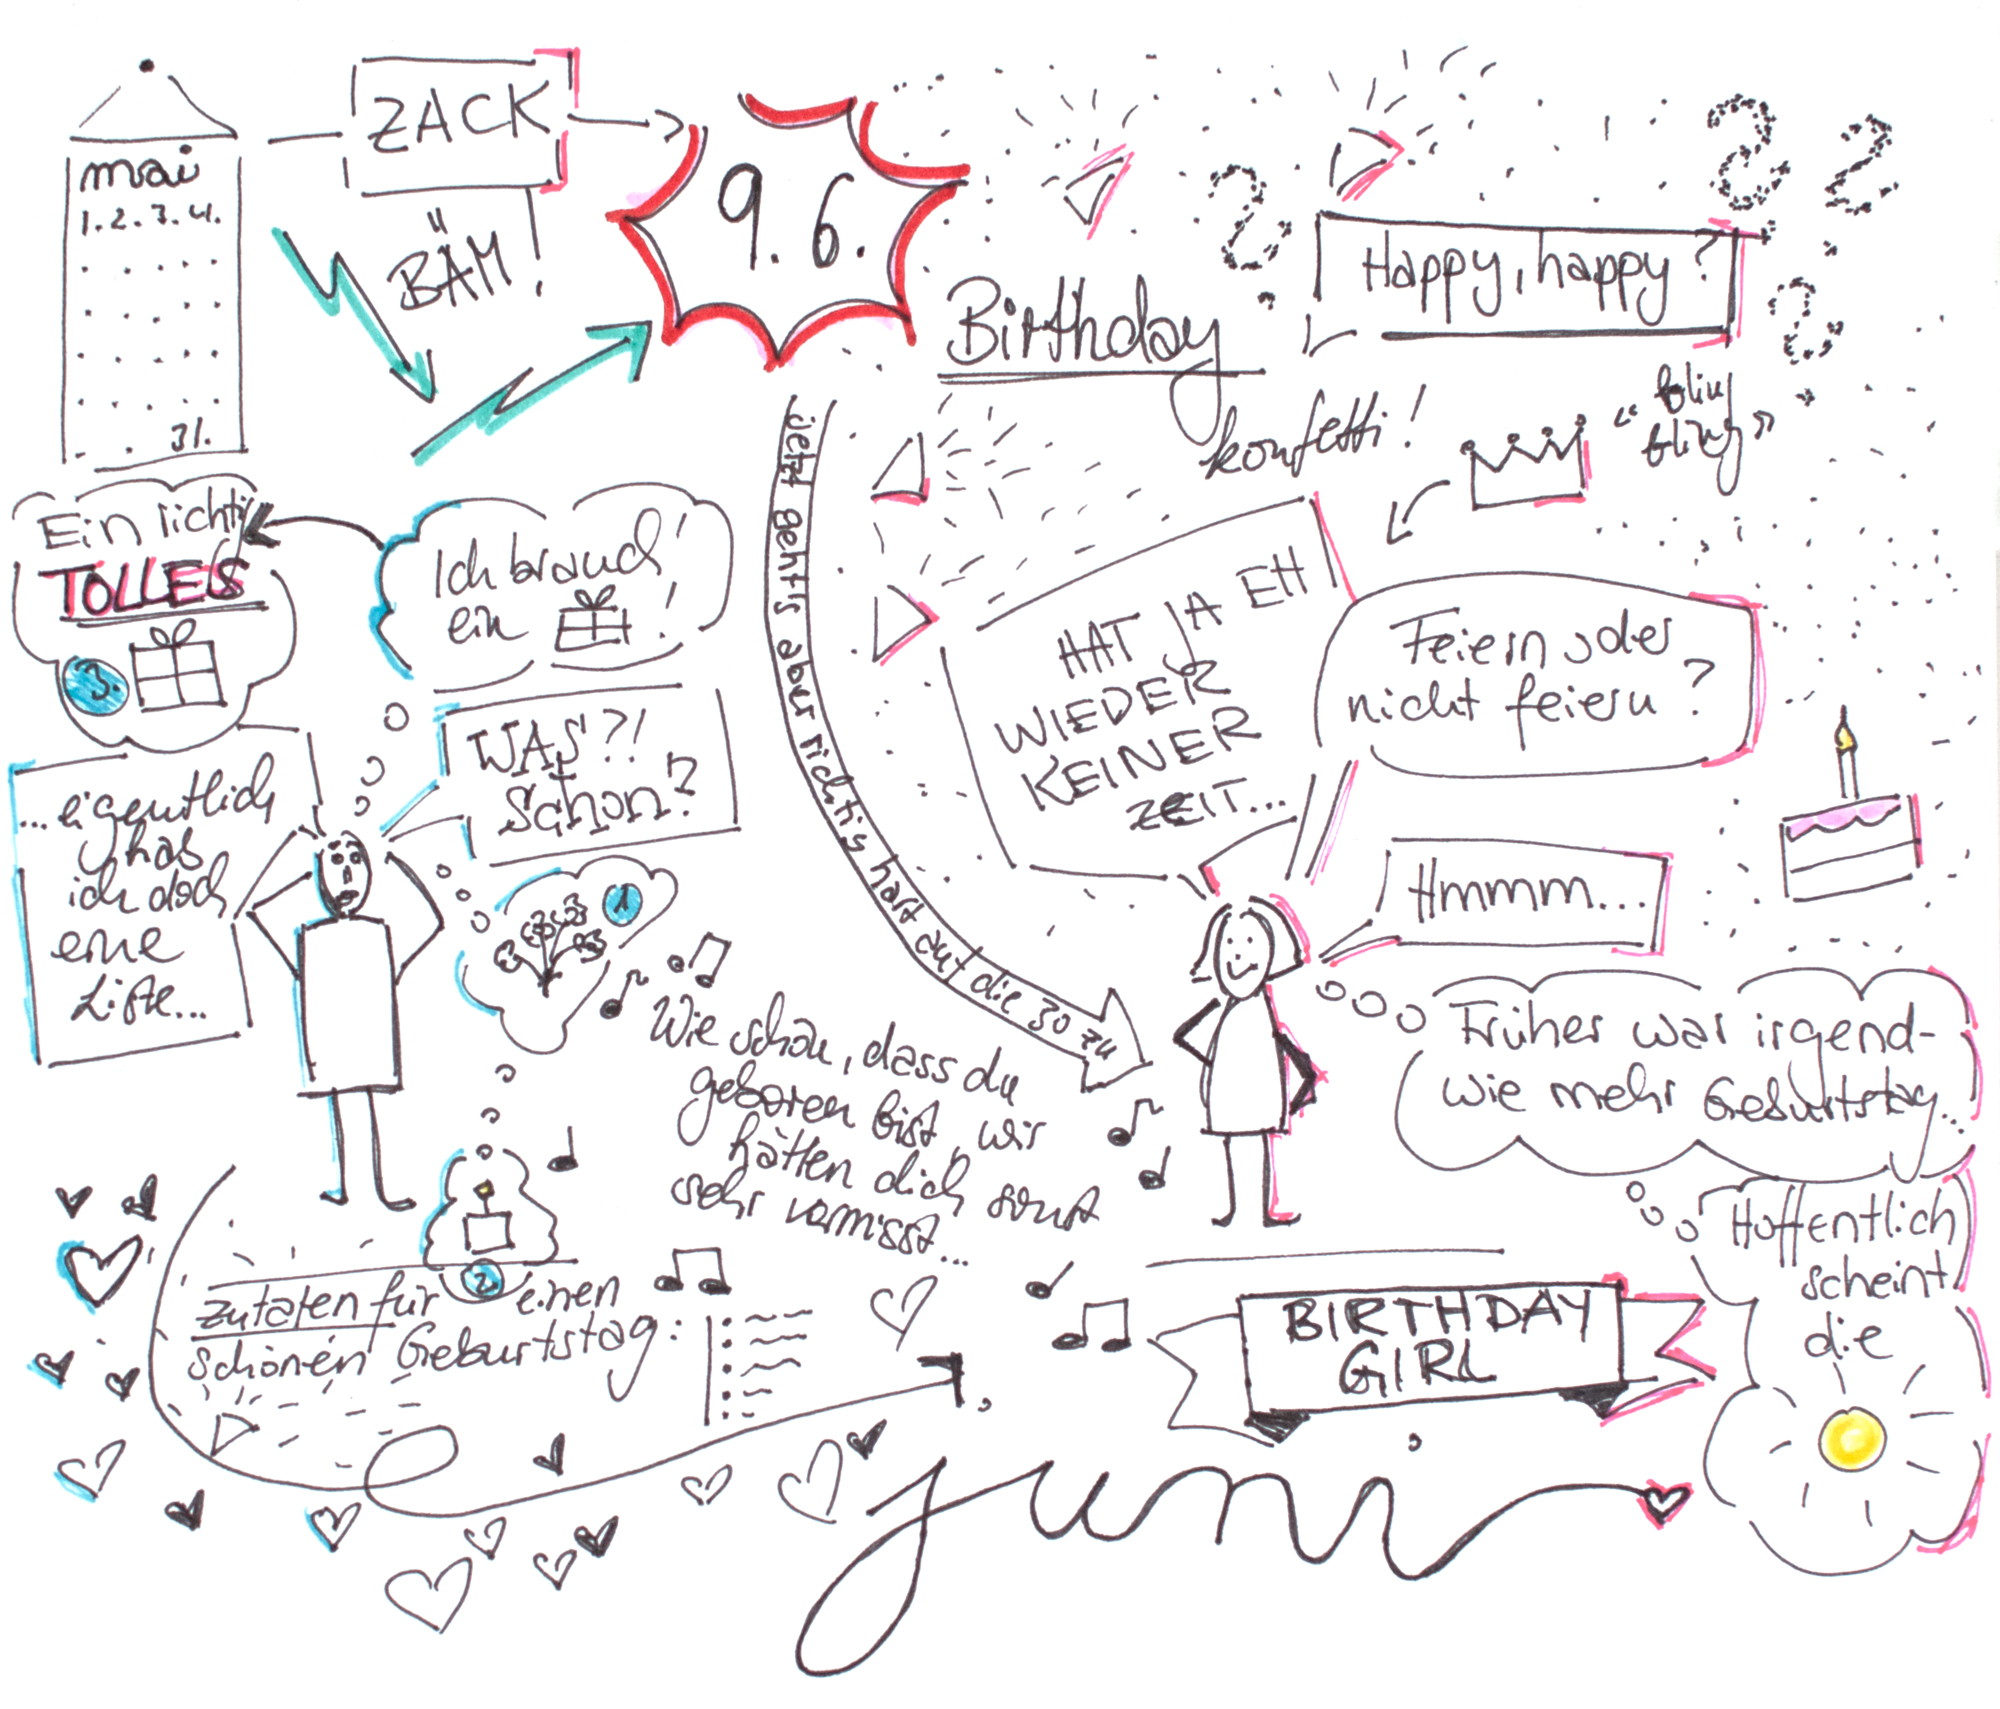 mai
1. 2. 3. 4.
31.
ZACK
BÄM!
9. 6.
Birthday
Happy, happy?
konfetti!
"bling
bling"
Ein richtig
TOLLES
3.
Ich brauch
ein !
WAS?!
Schon?
...eigentlich
hab
ich doch
eine
Liste...
1
jetzt geht's aber richtig hart auf die 30 zu
HAT JA EH
WIEDER
KEINER
ZEIT...
Feiern oder
nicht feiern?
Hmmm...
Früher war irgend-
wie mehr Geburtstag...
Hoffentlich
scheint
die
Wie schön, dass du
geboren bist, wir
hätten dich sonst
sehr vermisst...
2.
Zutaten für einen
schönen Geburtstag:
BIRTHDAY
GIRL
juni